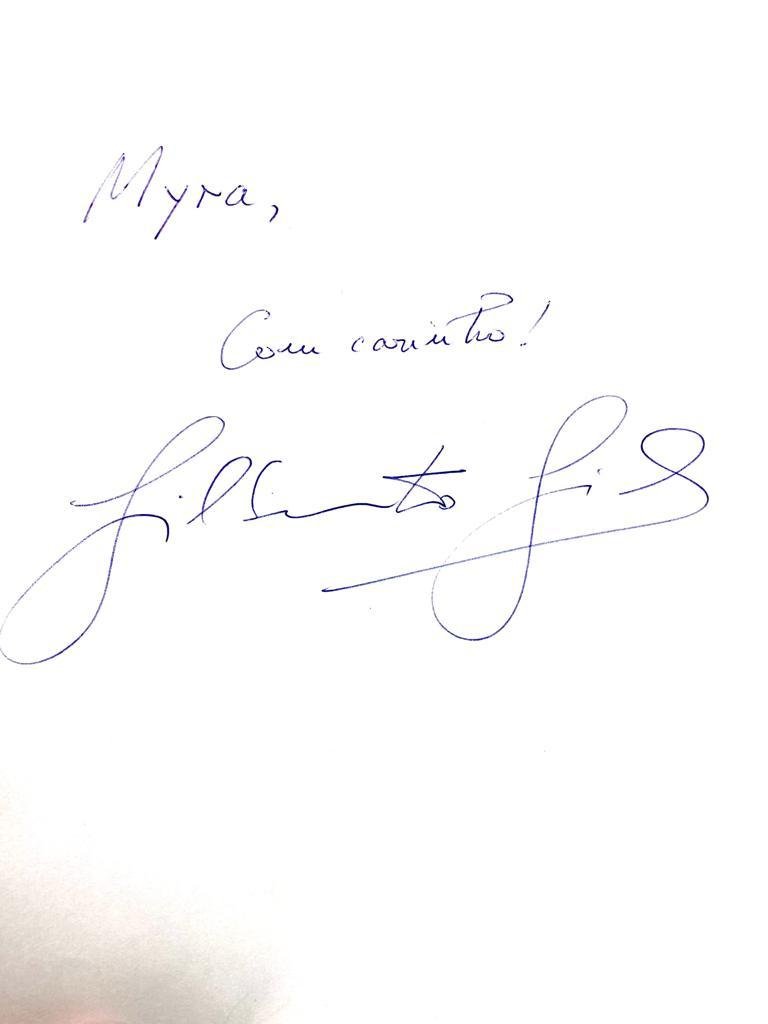 Myra,
Com carinho!
Gilberto Gil